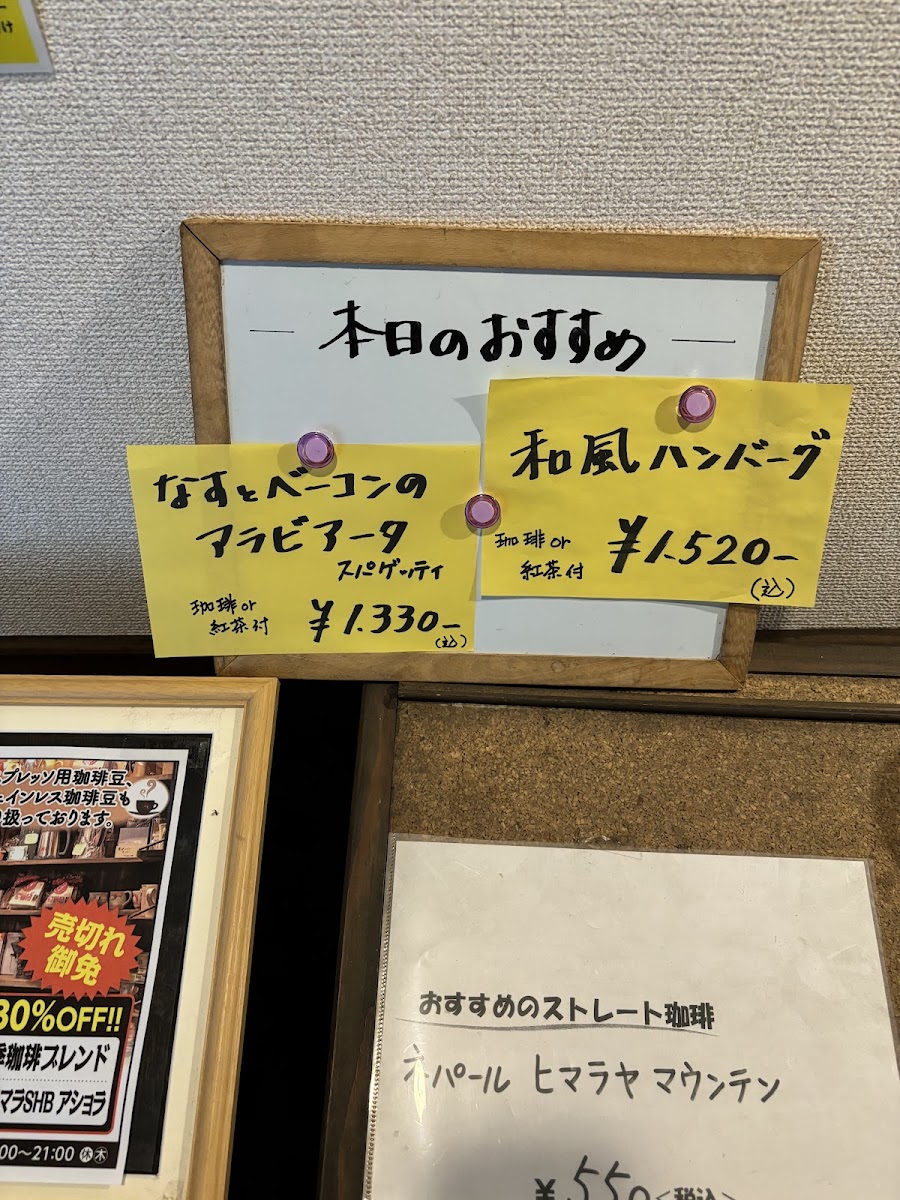 け
本日のおすすめ
なすとベーコンの
アラビアータ
スパゲッティ
珈琲or
紅茶付
¥1.330-
(込)
和風ハンバーグ
珈琲or
紅茶付
¥1.520-
(込)
プレッソ用珈琲豆、
ェインレス珈琲豆も
扱っております。
売切れ
御免
30%OFF!!
珈琲ブレンド
マラSHB アショラ
00～21:00 休 木
おすすめのストレート珈琲
ネパール ヒマラヤ マウンテン
¥550<税込>